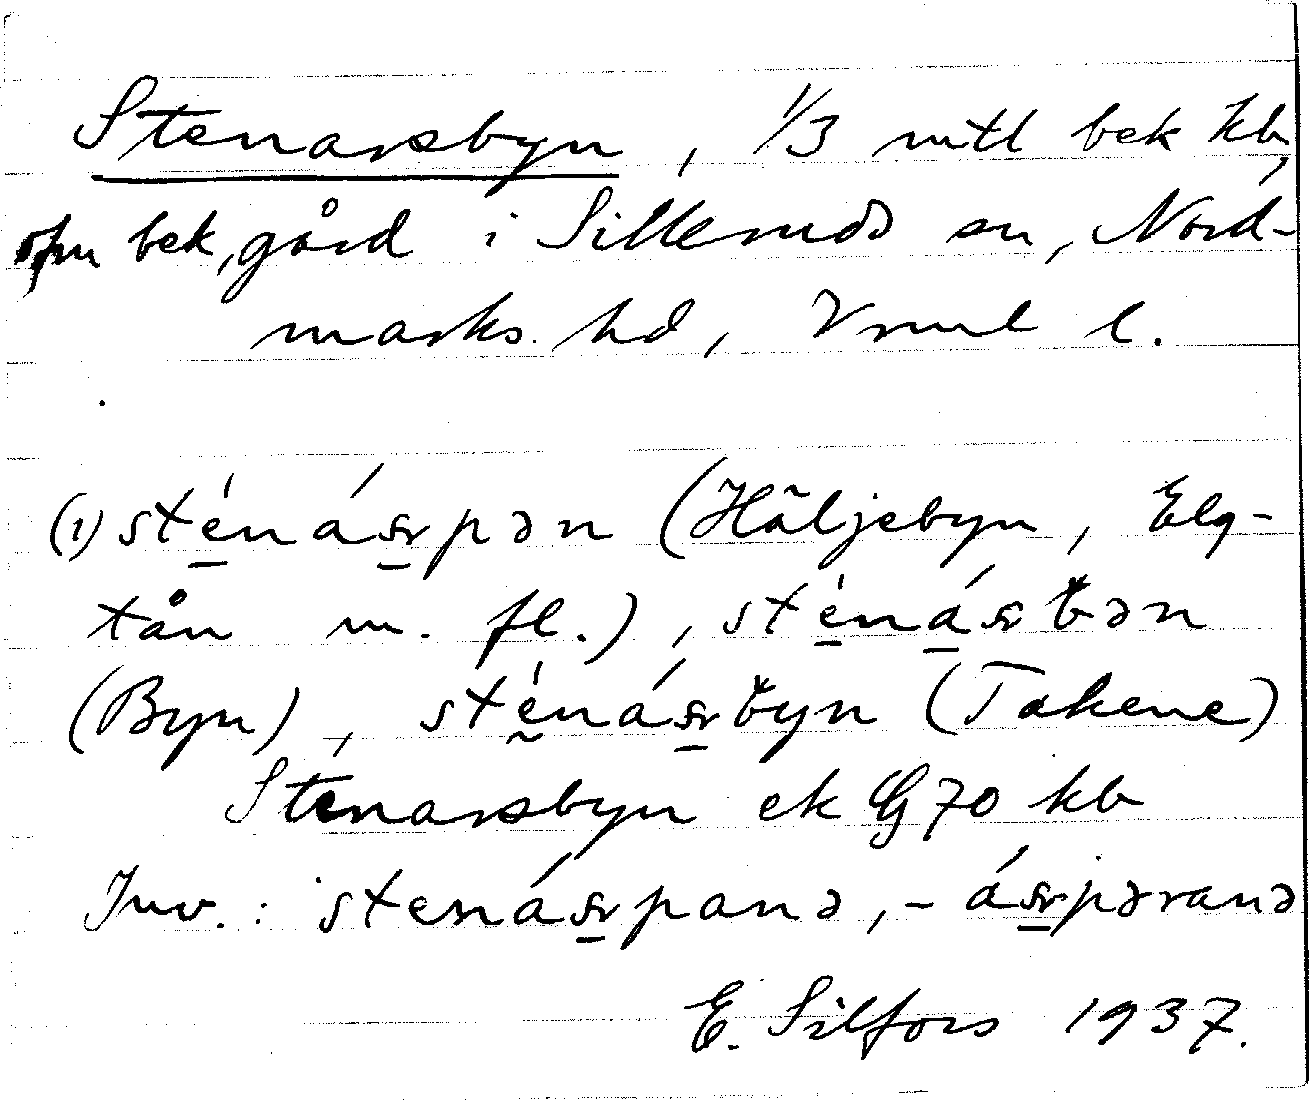 Stenarsbyn, 1/3 mtl bek kb,
ofm bek, gård i Sillerud sn, Nord-
marks hd, Vrml l.
(1) sténáșpən (Häljebyn, Elg-
tån m. fl.), sténásbən
(Byn), sténásbyn (Takene)
Stenarsbyn ek G 70 kb
Inv.: stenáspanə, -áspəranə
E. Silfors 1937.